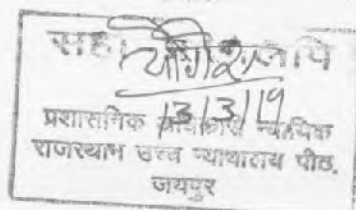 13/3/19
प्रशासनिक अधिकारी न्यायिक
राजस्थान उच्च न्यायालय पीठ,
जयपुर